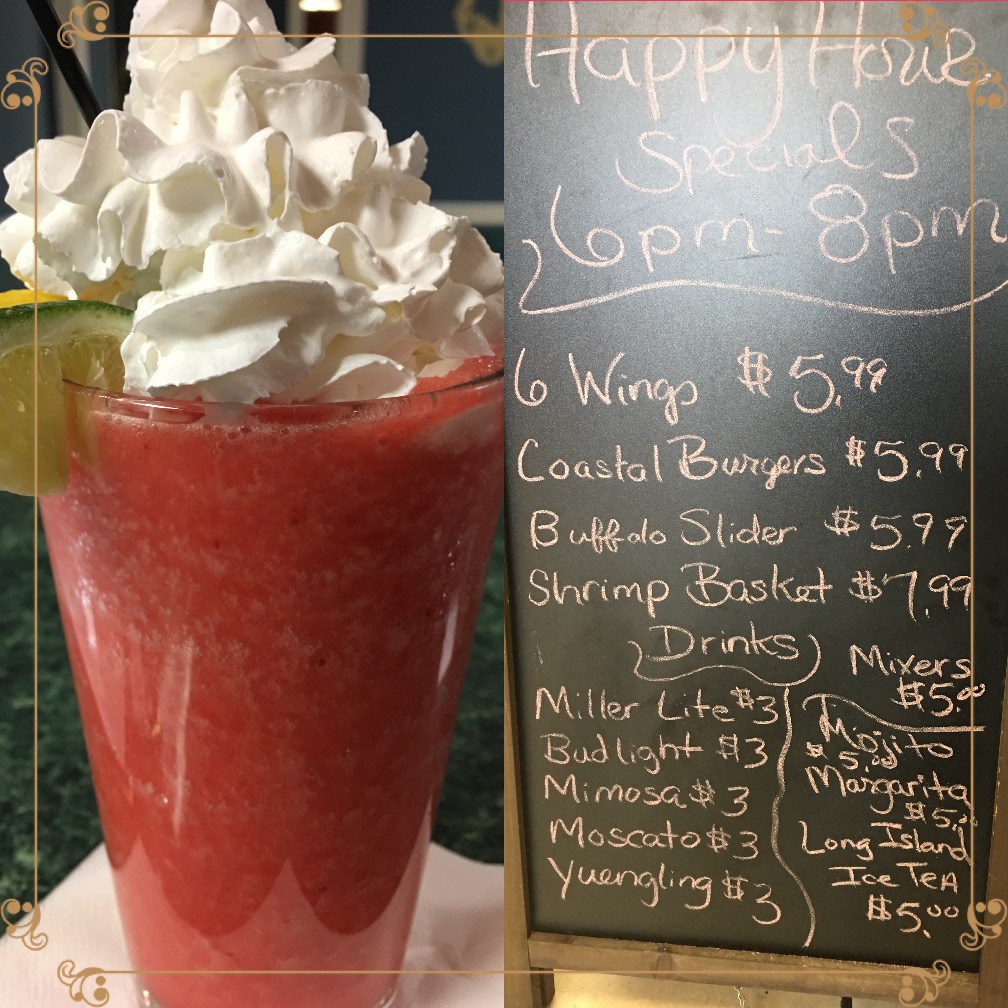 Happy Hour
Specials
6pm - 8pm
6 Wings $5.99
Coastal Burgers $5.99
Buffalo Slider $5.99
Shrimp Basket $7.99
Drinks
Miller Lite $3
Bud light $3
Mimosa $3
Moscato $3
Yuengling $3
Mixers
$5.00
Mojito
$5.00
Margarita
$5.00
Long Island
Ice Tea
$5.00